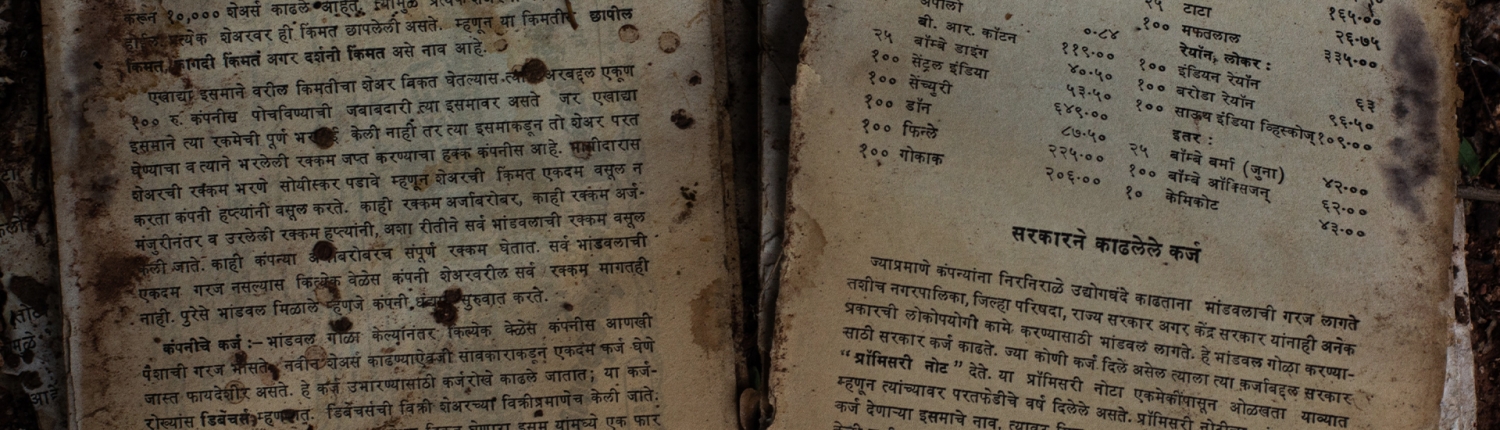 करून १०,००० शेअर्स काढले आहेत. त्यामुळे
प्रत्येक शेअरवर ही किंमत छापलेली असते. म्हणून या किमतीस छापील
किंमत, कागदी किंमत अगर दर्शनी किंमत असे नाव आहे.
एखाद्या इसमाने वरील किमतीचा शेअर विकत घेतल्यास त्या शेअरबद्दल एकूण
१०० रु. कंपनीस पोचविण्याची जबाबदारी त्या इसमावर असते जर एखाद्या
इसमाने त्या रकमेची पूर्ण भरपाई केली नाही तर त्या इसमाकडून तो शेअर परत
घेण्याचा व त्याने भरलेली रक्कम जप्त करण्याचा हक्क कंपनीस आहे. भागीदारास
शेअरची रक्कम भरणे सोयीस्कर पडावे म्हणून शेअरची किंमत एकदम वसूल न
करता कंपनी हप्त्यांनी वसूल करते. काही रक्कम अर्जाबरोबर, काही रक्कम अर्ज-
मंजुरीनंतर व उरलेली रक्कम हप्त्यांनी, अशा रीतीने सर्व भांडवलाची रक्कम वसूल
केली जाते. काही कंपन्या अर्जाबरोबरच संपूर्ण रक्कम घेतात. सर्व भांडवलाची
एकदम गरज नसल्यास कित्येक वेळेस कंपनी शेअरवरील सर्व रक्कम मागतही
नाही. पुरेसे भांडवल मिळाले म्हणजे कंपनी धंद्यास सुरुवात करते.
कंपनीचे कर्ज :– भांडवल गोळा केल्यानंतर कित्येक वेळेस कंपनीस आणखी
पैशाची गरज भासते. नवीन शेअर्स काढण्याऐवजी सावकाराकडून एकदम कर्ज घेणे
जास्त फायदेशीर असते. हे कर्ज उभारण्यासाठी कर्जरोखे काढले जातात; या कर्ज-
रोख्यांस डिबेंचर्स म्हणतात. डिबेंचर्सची विक्री शेअरच्या विक्रीप्रमाणेच केली जाते;
इसम यांमध्ये एक फार
अपोलो
बी. आर. कॉटन ०·८४
२५ बॉम्बे डाइंग ११९·००
१०० सेंट्रल इंडिया ४०·५०
१०० सेंच्युरी ५३·५०
१०० डॉन ६४९·००
१०० फिन्ले ८७·५०
१०० गोकाक २२५·००
२०६·००
२५ टाटा १६५·००
१०० मफतलाल २६·७५
रेयॉन, लोकर : ३३५·००
१०० इंडियन रेयॉन
१०० बरोडा रेयॉन ६३
१०० साऊथ इंडिया व्हिस्कोज् ९६·५०
इतर : १०९·००
२५ बॉम्बे बर्मा (जुना)
१०० बॉम्बे ऑक्सिजन् ४२·००
१० केमिकोट ६२·००
४३·००
सरकारने काढलेले कर्ज
ज्याप्रमाणे कंपन्यांना निरनिराळे उद्योगधंदे काढताना भांडवलाची गरज लागते
तशीच नगरपालिका, जिल्हा परिषदा, राज्य सरकार अगर केंद्र सरकार यांनाही अनेक
प्रकारची लोकोपयोगी कामे करण्यासाठी भांडवल लागते. हे भांडवल गोळा करण्या-
साठी सरकार कर्ज काढते. ज्या कोणी कर्ज दिले असेल त्याला त्या कर्जाबद्दल सरकार
“ प्रॉमिसरी नोट ” देते. या प्रॉमिसरी नोटा एकमेकींपासून ओळखता याव्यात
म्हणून त्यांच्यावर परतफेडीचे वर्ष दिलेले असते. प्रॉमिसरी
कर्ज देणाऱ्या इसमाचे नाव,